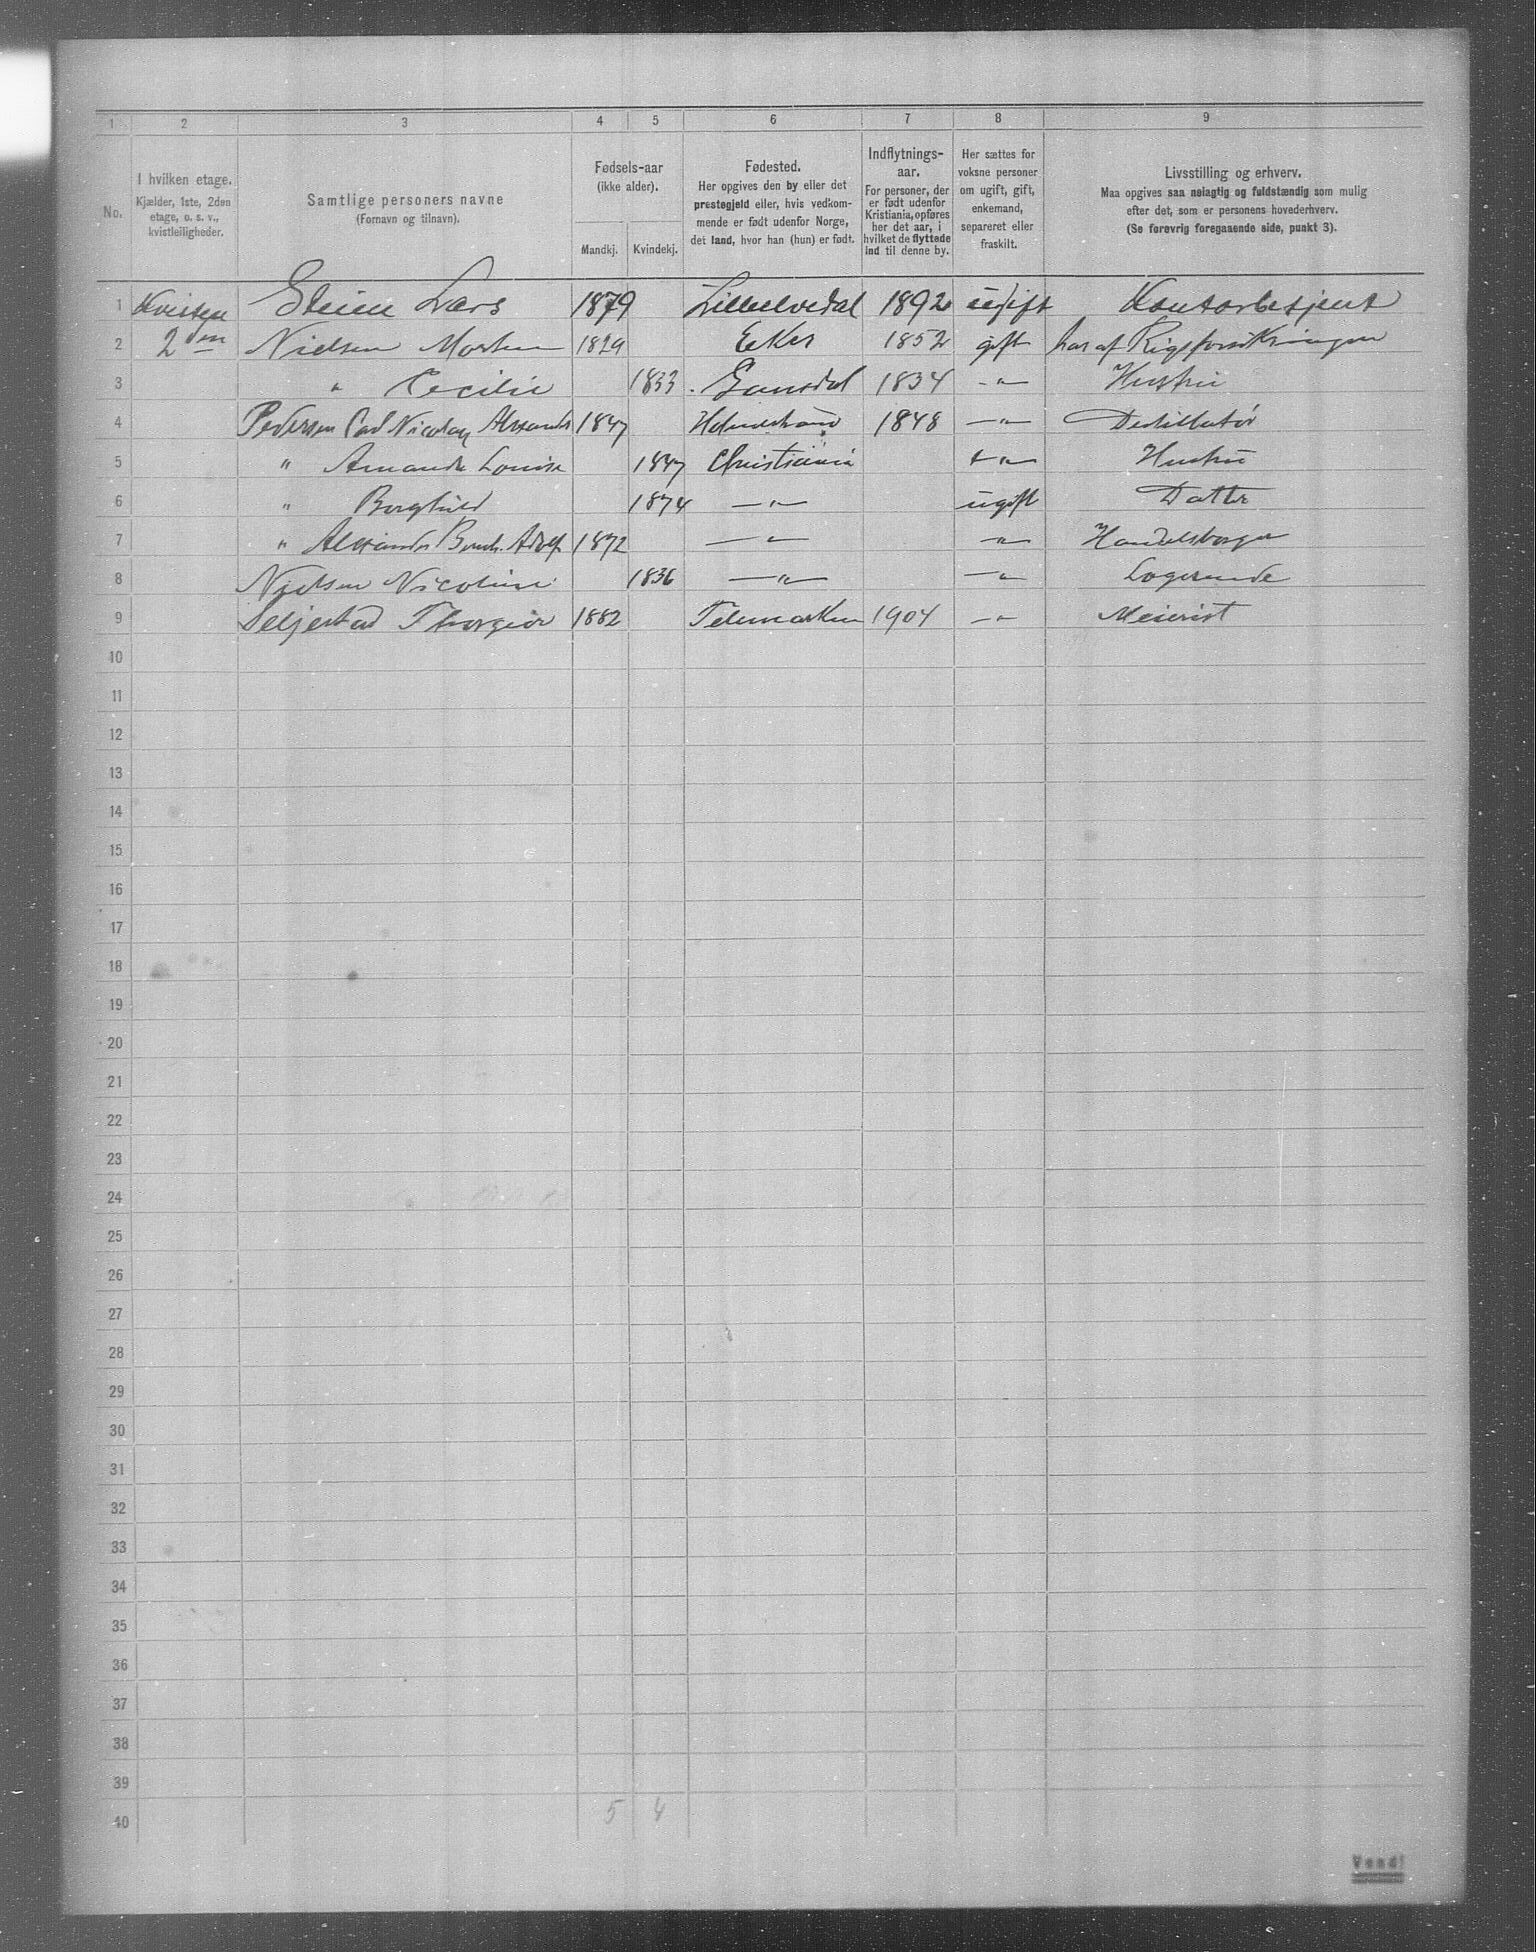 1 2 3 4 5 6 7 8 9
No. I hvilken etage. Kjælder, 1ste, 2den etage, o. s. v., kvistleiligheder. Samtlige personers navne (Fornavn og tilnavn). Fødsels-aar (ikke alder). Mandkj. Kvindekj. Fødested. Her opgives den by eller det prestegjeld eller, hvis vedkommende er født udenfor Norge, det land, hvor han (hun) er født. Indflytnings-aar. For personer, der er født udenfor Kristiania, opføres her det aar, i hvilket de flyttede ind til denne by. Her sættes for voksne personer om ugift, gift, enkemand, separeret eller fraskilt. Livsstilling og erhverv. Maa opgives saa nøiagtig og fuldstændig som mulig efter det, som er personens hovederhverv. (Se forøvrig foregaaende side, punkt 3).
1 Steien Lars 1879 Lilleelvedal 1892 ugift Kontorbetjent
2 2den Nielsen Morten 1829 Eker 1852 gift har af Rigsforsikringen
3 " Cecilie 1833 1834 -"- Hustru
4 Pedersen Carl Nicolay 1847 Holmestrand 1848 -"- Destillatør
5 " Amanda Lovise 1847 Christiania -"- Hustru
6 " Borghild 1874 -"- ugift Datter
7 " 1872 -"- -"- Handelsborger
8 Nielsen Nicoline 1836 -"- -"- Logerende
9 Seljestad Thorgeir 1882 Telemarken 1904 -"- Meierist
10
11
12
13
14
15
16
17
18
19
20
21
22
23
24
25
26
27
28
29
30
31
32
33
34
35
36
37
38
39
40 5 4
Vend!